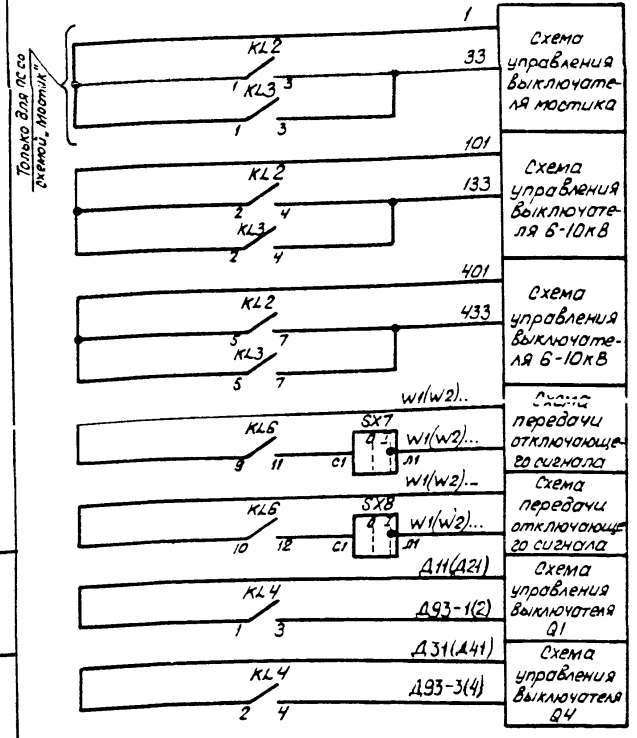 Только для ПС со
схемой „Мостик"
1
KL2
33
1 3
KL3
1 3
Схема
управления
выключате-
ля мостика
101
KL2
133
2 4
KL3
2 4
Схема
управления
выключате-
ля 6-10кВ
401
KL2
433
5 7
KL3
5 7
Схема
управления
выключате-
ля 6-10кВ
W1(W2)..
SX7
KL6
0 1
W1(W2)...
9 11
C1
Л1
Схема
передачи
отключающе-
го сигнала
W1(W2)...
SX8
KL6
0 1
W1(W2)...
10 12
C1
Л1
Схема
передачи
отключающе-
го сигнала
Д11(Д21)
KL4
Д93-1(2)
1 3
Схема
управления
выключателя
Q1
Д31(Д41)
KL4
Д93-3(4)
2 4
Схема
управления
выключателя
Q4